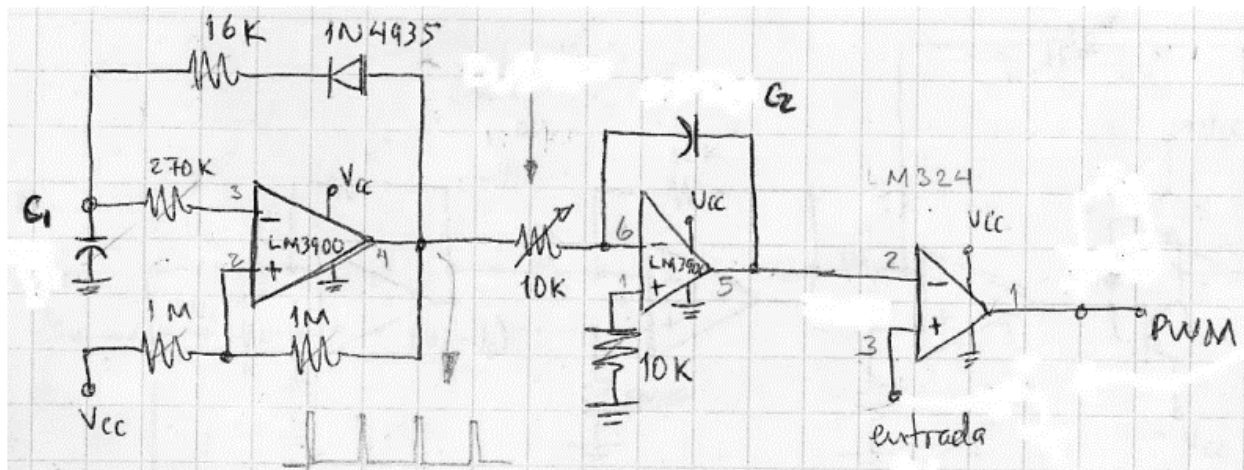 16K
1N4935
C1
270K
3
Vcc
-
LM3900
4
2
+
1M
1M
Vcc
10K
C2
6
Vcc
-
LM3900
5
1
+
10K
LM324
Vcc
2
-
1
PWM
+
3
entrada